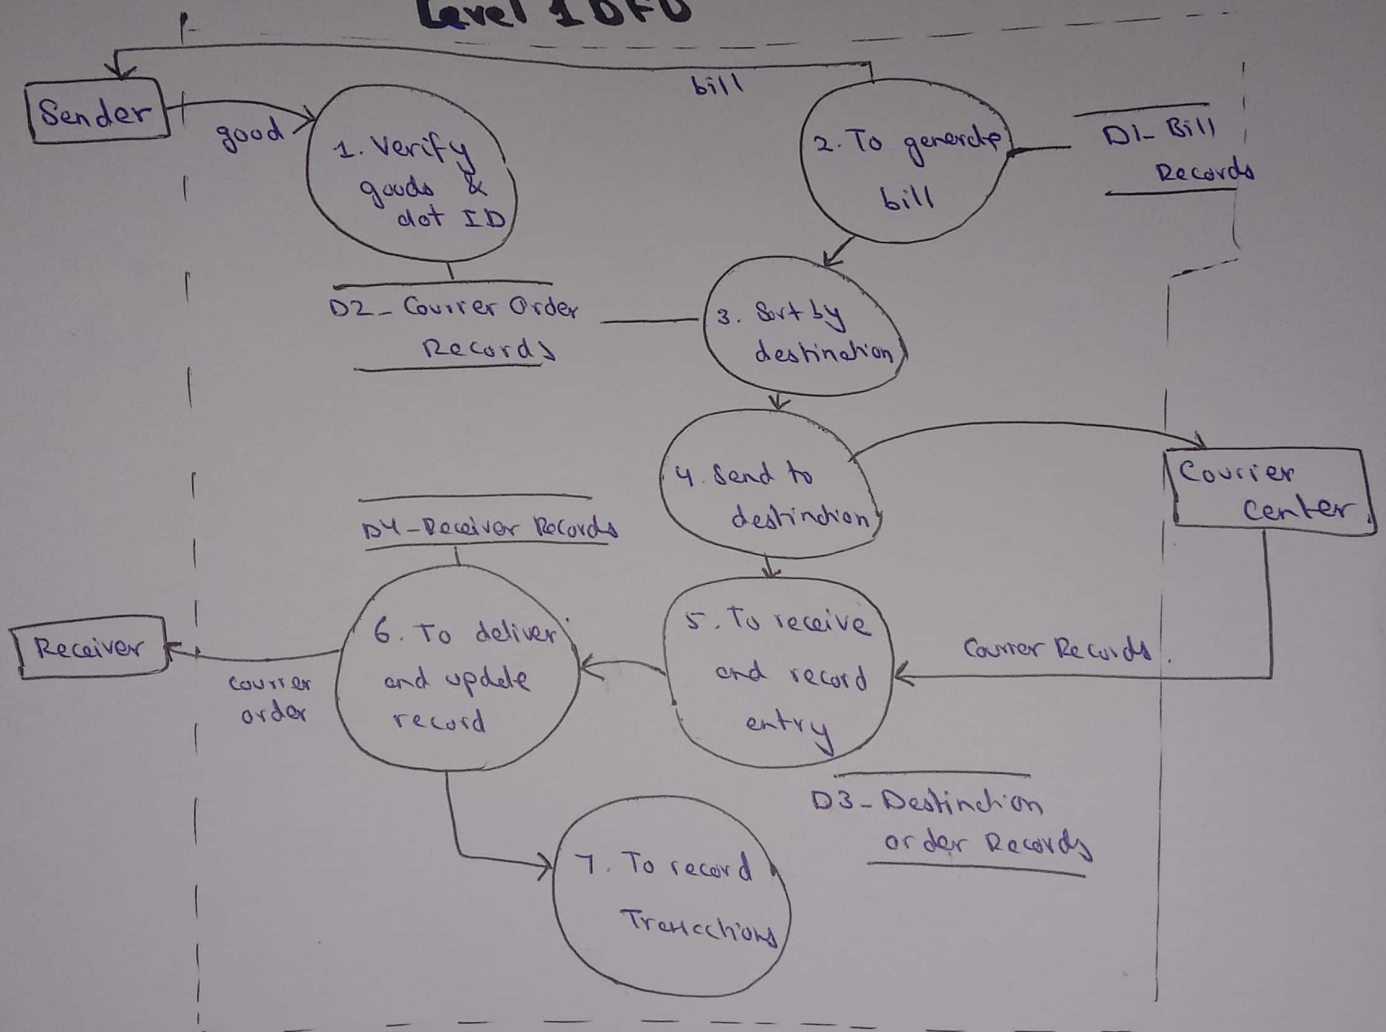 Level 1 DFD
bill
Sender
good
1. Verify
goods &
dot ID
2. To generate
bill
D1- Bill
Records
D2- Courier Order
Records
3. Sort by
destination
4. Send to
destination
Courier
Center
D4-Receiver Records
Receiver
courier
order
6. To deliver
and update
record
5. To receive
and record
entry
Courier Records
D3- Destination
order Records
7. To record
Transactions